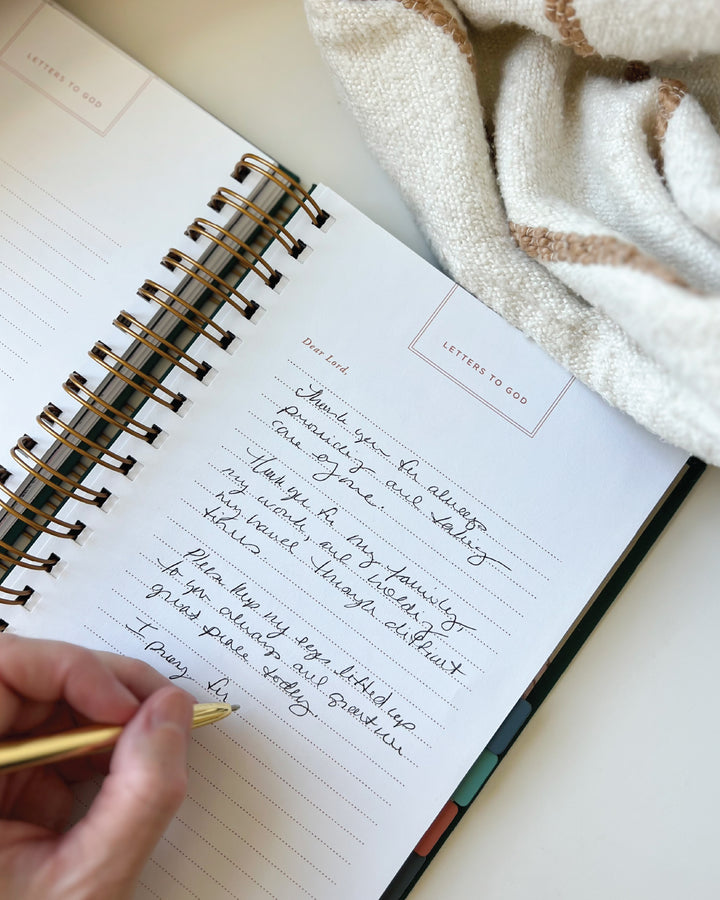 LETTERS TO GOD
LETTERS TO GOD
Dear Lord,
Thank you for always
providing and taking
care of me.
Thank you for my family,
my work, and holding
my hand through difficult
times
Please keep my eyes lifted up
to you always and grant me
great peace today.
I pray for